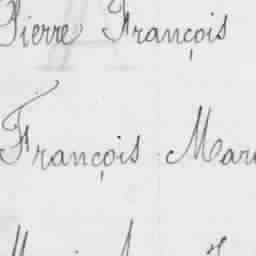 Pierre François
François Mar